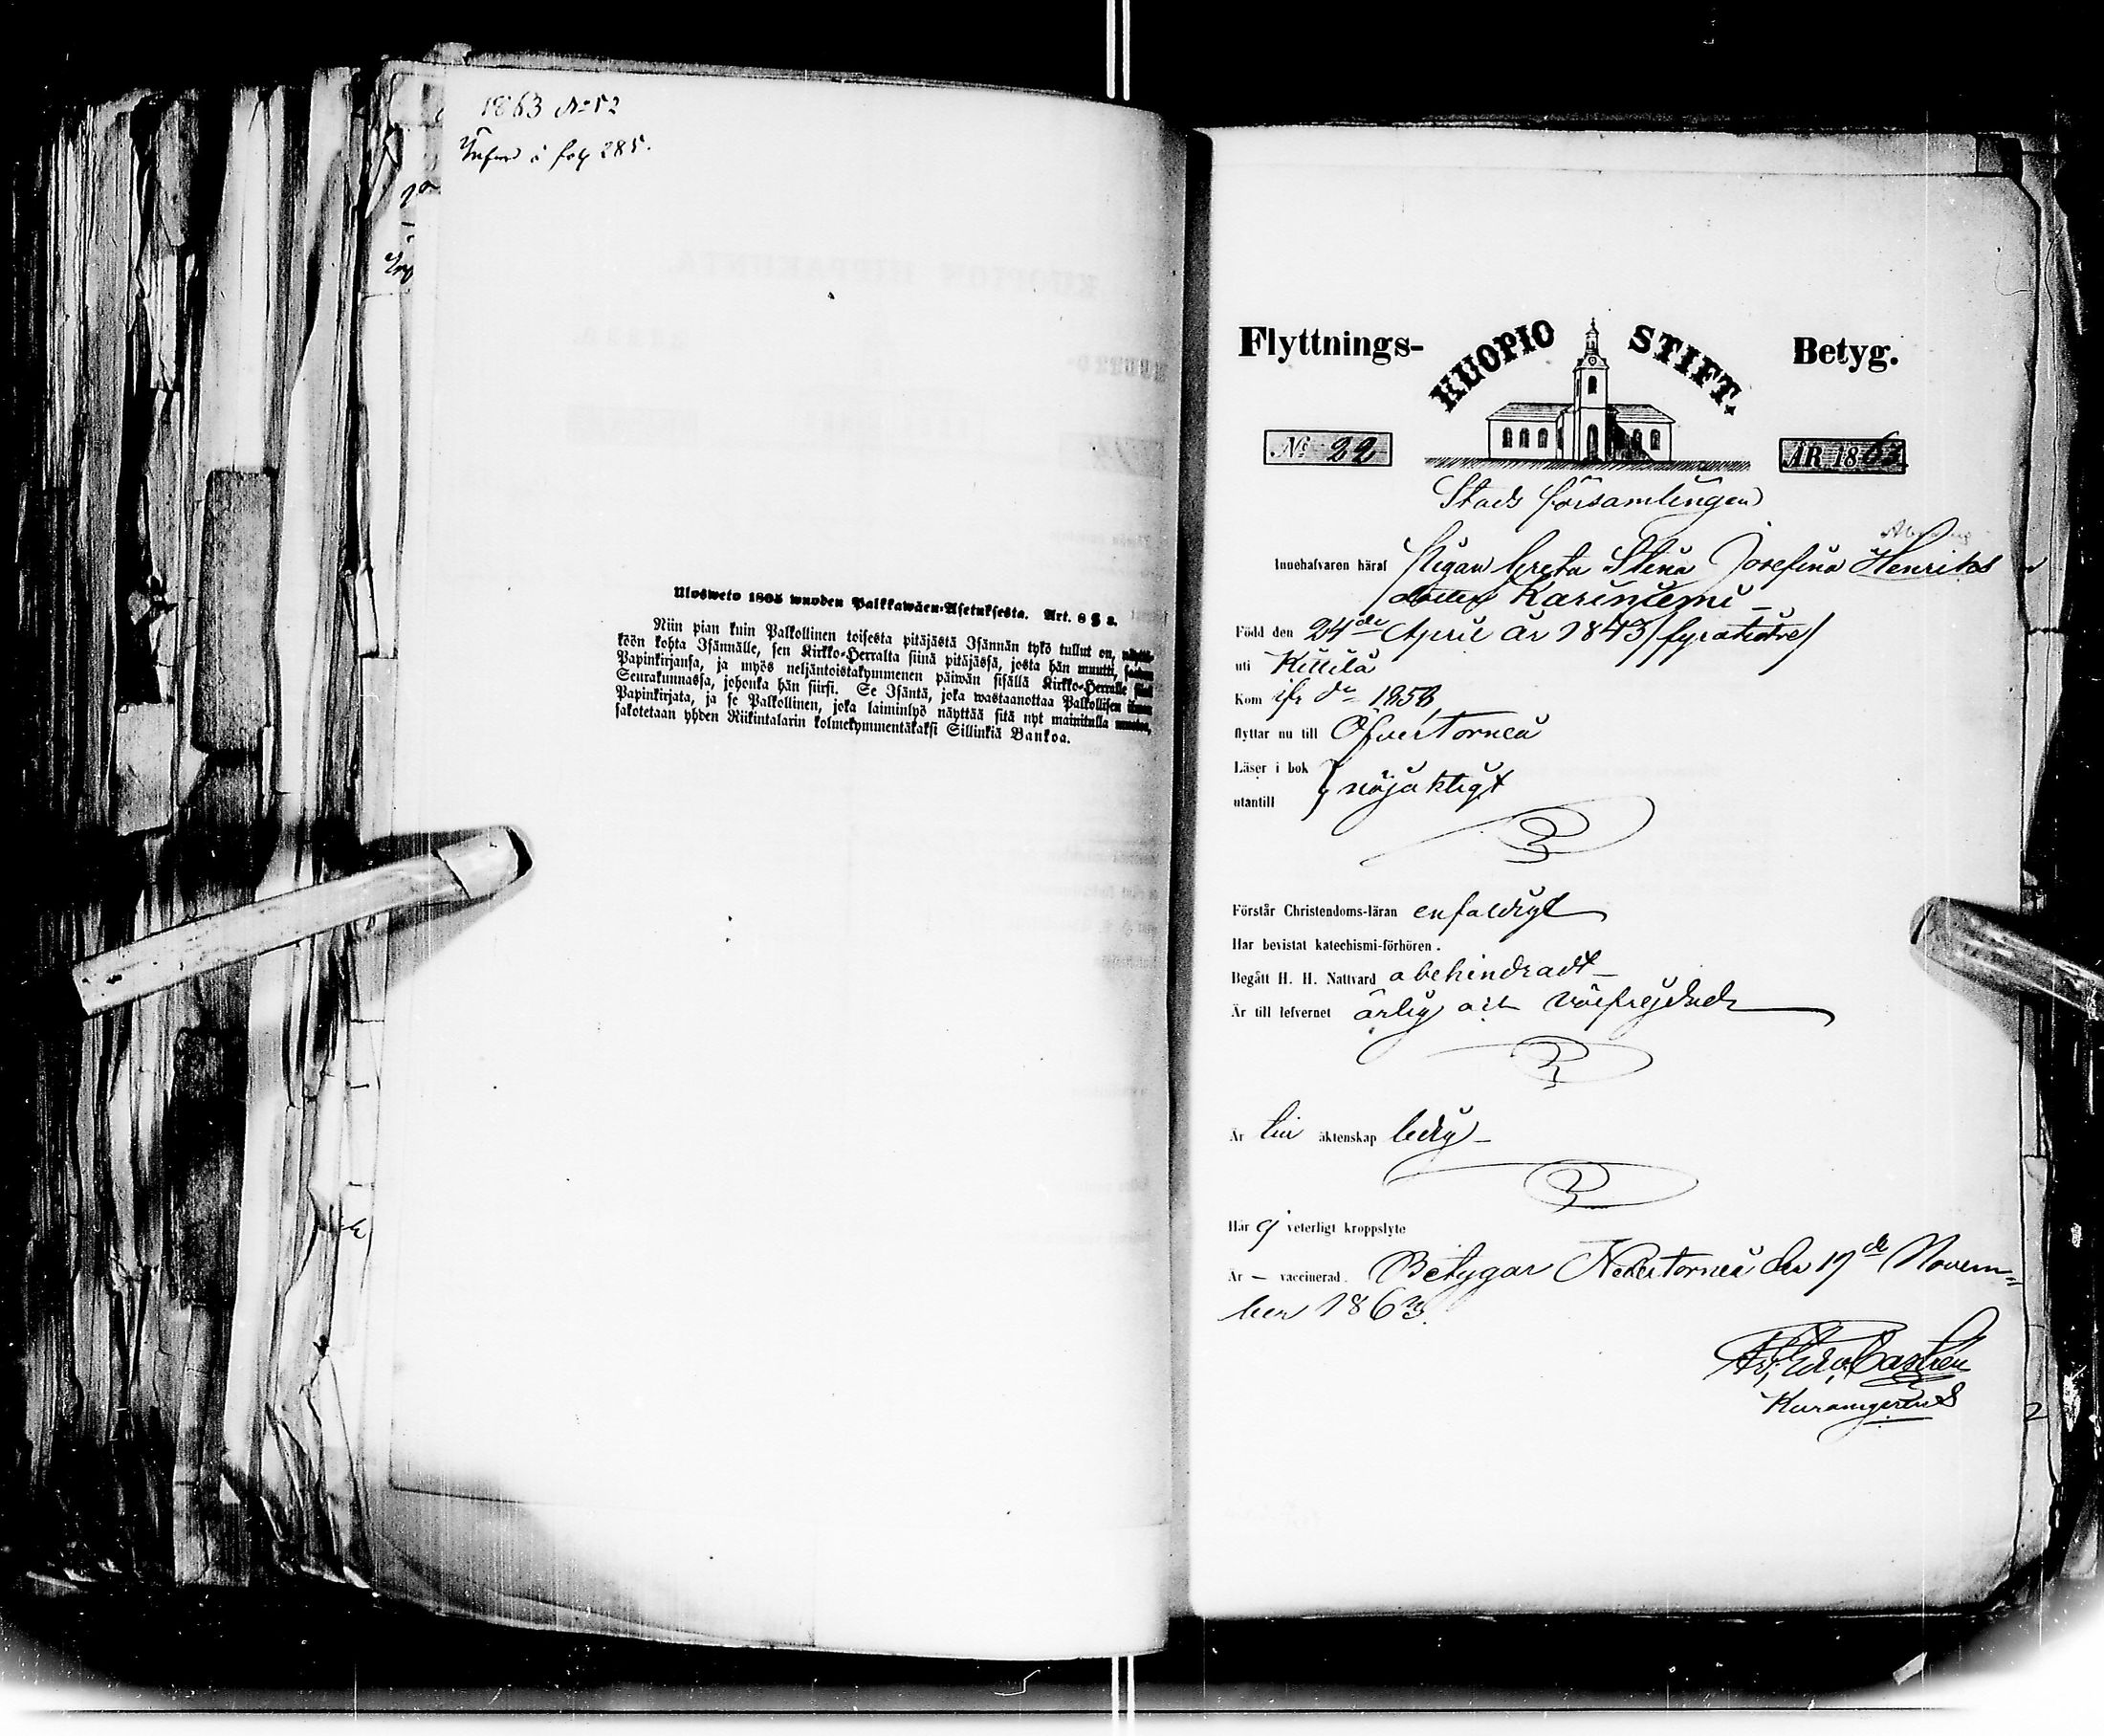 1863 No 52
Införd å pag 285.
Ulosweto 1805 wuoden Palkkawäen-Asetuksesta. Art. 8 § 3.
Niin pian kuin Palkollinen toisesta pitäjästä Isännän tykö tullut on, näyttä-
köön kohta Isännälle, sen Kirkko-Herralta siinä pitäjässä, josta hän muutti, saadun
Papinkirjansa, ja myös neljäntoistakymmenen päiwän sisällä Kirkko-Herralle siinä
Seurakunnassa, johonka hän siirsi. Se Isäntä, joka wastaanottaa Palkollisen ilman
Papinkirjata, ja se Palkollinen, joka laiminlyö näyttää sitä nyt mainitulla muotoa,
sakotetaan yhden Riikintalarin kolmekymmentäkaksi Sillinkiä Bankoa.
Flyttnings- KUOPIO STIFT. Betyg.
No 22 ÅR 1863
Stads församlingen
Innehafvaren häraf Pigan Greta Stina Josefina Henriks
dotter Kariniemi
Född den 24de April år 1843 /fyratiotre/
uti Kittilä
Kom ifr do 1858,
flyttar nu till Öfvertorneå
Läser i bok } nöjaktigt
utantill
Förstår Christendoms-läran enfaldigt
Har bevistat katechismi-förhören.
Begått H. H. Nattvard obehindradt
Är till lefvernet ärlig och välfrejdad
Är till äktenskap ledig
Har ej veterligt kroppslyte
Är — vaccinerad. Betygar Nedertorneå den 17de Novem-
ber 1863.
Castrén